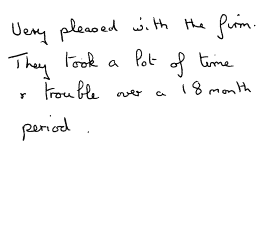 Very pleased with the firm.
They took a lot of time
& trouble over a 18 month
period.